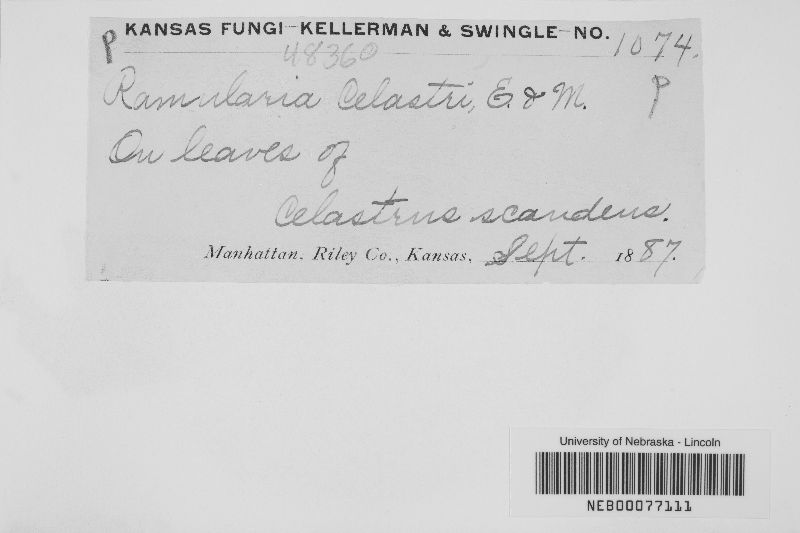 P KANSAS FUNGI-KELLERMAN & SWINGLE-NO. 1074.
48360
Ramularia Celastri, E. & M. P
On leaves of
Celastrus scandens.
Manhattan, Riley Co., Kansas, Sept. 1887.
University of Nebraska - Lincoln
NEB00077111